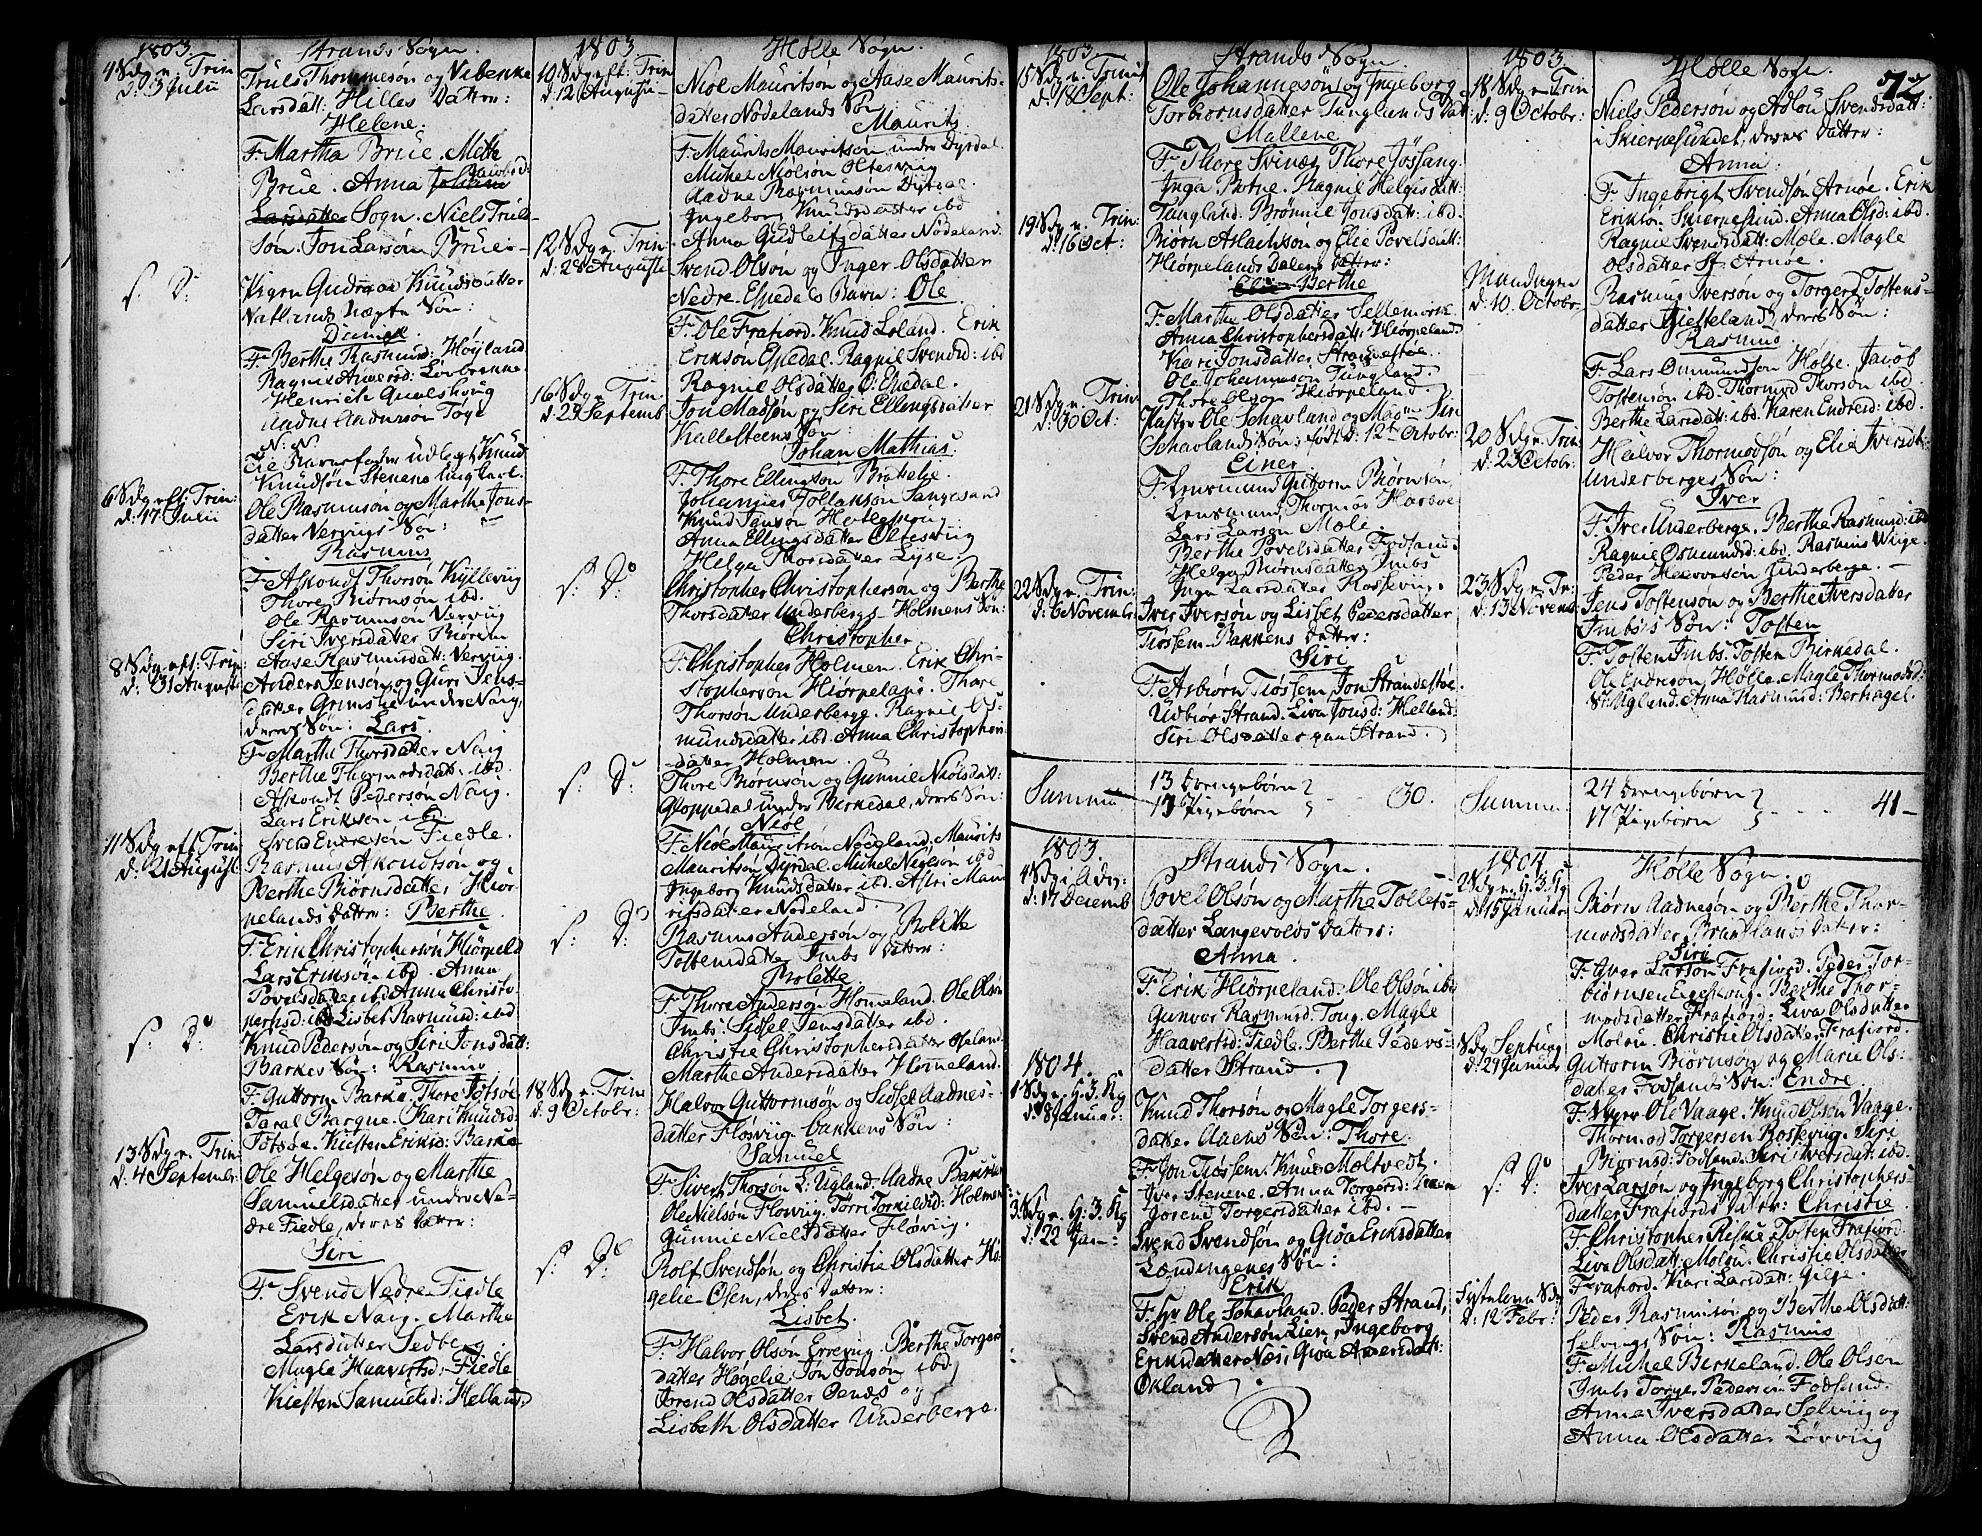 1803.
Strands Sogn.
4 Sdg. e. Trin
d: 3 Julii
Truls Thommesøn og Vibenke
Larsdatt: Hilles Datter:
Helene.
F: Martha Brue. Mette
Brue. Anna Jacobsd:
Larsdatter Sogn. Niels Truls-
søn. Jon Larsøn Brue.
S: D:
Pigen Gudrun Knudsdatter
Natlands uægte Søn:
F: Berthe Rasmusd: Høyland
Ragnil Andersd: Løvbrekke
Henrich Qualshoug
Aadne Aadnesøn Togt
N: N:
til Barnefader udlagt Knud
Knudsøn Stenens Ungkarl.
6 Sdg. eft: Trin:
d: 17 Julii
Ole Rasmusøn og Marthe Jons-
datter Vervigs Søn:
Rasmus
F: Askondt Thorsøn Kyllevig
Thore Biørnsøn ibd.
Ole Rasmusøn Vervig
Siri Iversdatter Biørem
Aase Rasmusdatt: Vervig.
8 Sdg. eft: Trin:
d: 31 Augusti
Anders Jensen og Guri Jens-
datter Grimslie under Naig,
deres Søn: Lars
F: Marthe Thorsdatter Naig
Berthe Thormodsdatt: ibd.
Askondt Pedersøn Naig.
Lars Eriksen ibd.
Svend Endresøn Fiedle.
11 Sdg. eft: Trin:
d: 21 August:
Rasmus Askondtsøn og
Berthe Biørnsdatter Hiør-
pelands Datter: Berthe.
F: Erik Christophersøn Hiørpeld
Lars Eriksøn ibd. Anna
Povelsdatter ibd Anna Christo-
phersd: ibd Lisbet Rasmusd: ibd
S: D:
Knud Pedersøn og Siri Jonsdatt:
Barkes Søn: Rasmus
F: Guttorm Barka. Thore Totsøe
Taral Barque. Kari Knudsd:
Totsøe. Kiersten Eriksd: Barke
13 Sdg. e. Trin
d: 4 September
Ole Helgesøn og Marthe
Samuelsdatter under Ne-
dre Fiedle, deres Datter:
Siri
F: Svend Nedre Fiedle
Erik Naig. Marthe
Larsdatter Sedberg
Magle Haavertsd: Fiedle
Kiersten Samuelsd: Helland.
1803
Hølle Sogn.
10 Sdg. eft: Trin
d: 12 August
Niøl Mauritsøn og Aase Maurits-
datter Nødelands Søn:
Maurits.
F: Maurits Mauritsøn under Dyrdal
Michel Niølsøn Oltesvig
Aadne Rasmusøn Dyrdal
Ingeborg Knudsdatter ibd
Anna Gudleifsdatter Nødeland.
12 Sdg. e. Trin
d: 28 Augusti
Svend Olsøn og Inger Olsdatter
Nedre-Espedals Barn: Ole
F: Ole Frafiord. Knud Løland. Erik
Eriksøn Espedal. Ragnil Svendsd: ibd
Ragnil Olsdatter Ø: Espedal.
16 Sdg. e. Trin
d: 25 Septemb
Jon Madsøn og Siri Ellingsdatter
Kallesteens Søn:
Johan Mathias
F: Thore Ellingsøn Brattelie
Johannes Tollaksøn Sangesand
Knud Jansøn Hatleskoug
Anna Ellingsdatter Oltesviig
Helga Thorsdatter Lyse.
S: D:
Christopher Christophersøn og Berthe
Thorsdatter Underbergs-Holmens Søn:
Christopher
F: Christopher Holmen. Erik Chri-
stophersøn Hiørpeland. Thore
Thorsøn Underberge. Ragnil Os-
mundsdatter ibd. Anna Christophers-
datter Holmen.
S: D:
Thore Biørnsøn og Gunnil Niølsdatt:
Gloppedal under Birkedal, deres Søn:
Niøl
F: Niøl Mauritsøn Nødeland, Maurits
Mauritsøn Dyrdal. Michel Nielsøn ibd
Ingeborg Knudsdatter ibd. Astri Mau
ritsdatter Nødeland.
S: D:
Rasmus Andersøn og Bolette
Tostensdatter Imbs Datter:
Bolette
F: Thore Andersøn Hommeland. Ole Olsøn
Imbs. Sidsel Jensdatter ibd.
Christie Christophersdatter Høland
Marthe Andersdatter Hommeland.
18 Sdg. e. Trin
d: 9 Octobr:
Halvor Guttormsøn og Sidsel Aadnes-
datter Fløsviig-bakkens Søn:
Samuel
F: Sivert Thorsøn L: Ugland. Aadne
Ole Nielsøn Fløsvig. Torri Torkildsd: Holmen
Gunnil Nielsdatter Fløsviig.
S: D:
Rolf Svendsøn og Christie Olsdatter Hø-
gelie-Osen, deres Datter:
Lisbet.
F: Halvor Olsøn Errevig. Berthe Torgers
datter Høgelie. Jon Jonsøn ibd
Trond Olsdatter Oenæs og
Lisbeth Olsdatter Underberge.
1803
Strands Sogn
15 Sdg. e. Trinit
d: 18 Sept:
Ole Johannesøn og Ingeborg
Torbiørnsdatter Tunglands Dat:
Mallene
F: Thore Svines, Thore Jøssang.
Inga Botne. Ragnil Helgisdatt:
Tungland. Brønnil Jonsdatt: ibd.
19 Sdg. e. Trin:
d: 16 Oct:
Biørn Aslachsøn og Elie Povelsdatt:
Hiørpelands Dalens Datter:
Berthe
F: Marthe Olsdatter Sellemork
Anna Christophersdatt: Hiørpeland.
Kari Jonsdatter Strandestøe.
Ole Johannesøn Tungland.
Thore Olsøn Hiørpeland.
21 Sdg. e. Trin:
d: 30 Oct:
Pastor Ole Schavland og Mag: Siri
Schavlands Søn: født d: 12te Octobr:
Einer
F: Lensmand Guttorm Biørnsøn,
Lensmand Thormod Harboe
Lars Larsøn Mole.
Berthe Povelsdatter Fodland.
Helga Biørnsdatter Imbs
Inga Larsdatter Rossevig.
22 Sdg. e. Trin:
d: 6 Novembr
Iver Iversøn og Lisbet Pedersdatter
Tiøssem-Bakkens Datter:
Siri
F: Asbiørn Tiøssem, Jon Strandestøe.
Udbiør Strand. Liva Jonsd: Helland:
Siri Olsdatter paa Strand.
Summa
13 Drengebørn
17 Pigebørn - 30.
1803.
Strands Sogn.
4 Sdg. i Adv:
d: 17 Decemb
Povel Olsøn og Marthe Tollefs-
datter Langevolds Datter:
Anna.
F: Erik Hiørpeland: Ole Olsøn ibd
Gunvor Rasmusd: Toug. Magle
Haavertsd: Fiedle. Berthe Peders-
datter Strand.
1804.
1 Sdg. e. H: 3. Kg
d: 8 Janua:
Knud Thorsøn og Magle Torgers-
datter Aaens Søn: Thore.
F: Jon Tiøssem. Knud Moltvedt.
Iver Stenene. Anna Torgersd:
Jorend Torgersdatter ibd.
3. Sdg. e. H: 3. Kg
d: 22 Jan:
Svend Svendsøn og Gioa Eriksdatter
Lændingenes Søn:
Erik
F: Hr Ole Schavland. Peder Strand,
Svend Andersøn Lien, Ingeborg
Eriksdatter Næs, Gioa Andersdatt:
Økland
1803
Hølle Sogn.
72
18 Sdg. e. Trin
d: 9 Octobr:
Niels Pedersøn og Adlou Svendsdatt:
i Skiernesundet, deres Datter:
Anna.
F: Ingebrigt Svendsøn Arnøe. Erik
Eriksøn Skiernesund. Anna Olsd: ibd.
Ragnil Svendsdatt: Mole. Magle
Olsdatter St: Arnøe.
Mandagen
d: 10. Octobr:
Rasmus Iversøn og Torgerd Tostens-
datter Gietteland, deres Søn:
Rasmus.
F: Lars Ommundsen Hølle. Jacob
Tostensøn ibd. Thormod Thorsøn ibd.
Berthe Larsdatt: ibd. Karen Endresd: ibd.
20 Sdg. e. Trin:
d: 23 Octobr:
Halvor Thormodsøn og Elie Iversdt:
Underberges Søn:
Iver
F: Iver Underberge. Berthe Rasmusd: ibd
Ragnil Osmundsd: ibd. Rasmus Wige.
Peder Halvorsøn Underberge.
23 Sdg. e. Tr:
d: 13 Novemb
Jens Tostensøn og Berthe Iversdatter
Imbs's Søn: Tosten
F: Tosten Imbs. Tosten Birkedal.
Ole Endresøn Hølle. Magle Thormodsd:
St: Ugland. Anna Rasmusd: Berhagel.
Summa
24 Drengebørn
17 Pigebørn - 41 -
1804
Hølle Sogn.
2 Sdg. e. H: 3. Kg
d: 15 Januar
Biørn Aadnesøn og Berthe Thor-
modsdatter Brattlands Datter:
Siri
F: Iver Larsøn Frafiord. Peder Tor-
biørnsen Eegeskoug. Berthe Thor-
modsdatter Frafiord: Liva Olsdatter
Molou. Christie Olsdatter Frafiord.
Sdg. Septuag
d: 29 Januar
Guttorm Biørnsøn og Marie Ols-
datter Fodlands Søn: Endre.
F: Ole Vaage. Knud Olsøn Vaage.
Thormod Torgersen Rossevig. Siri
Biørnsd: Fodland. Siri Iversdatt: ibd.
S: D:
Iver Larsøn og Ingeborg Christophers
datter Frafiords Datter: Christie
F: Christopher Reske. Tosten Frafiord
Liva Olsdatt: Molou. Christie Olsdatter
Frafiord. Kari Larsdatt: Gilje.
d: 12 Febr:
Peder Rasmusøn og Berthe Olsdatt:
Selvigs Søn: Rasmus
F: Michel Birkeland. Ole Olsøn
Imbs. Torger Pedersøn Fodland.
Anna Iversdatter Selviig og
Anna Olsdatter Løvviig